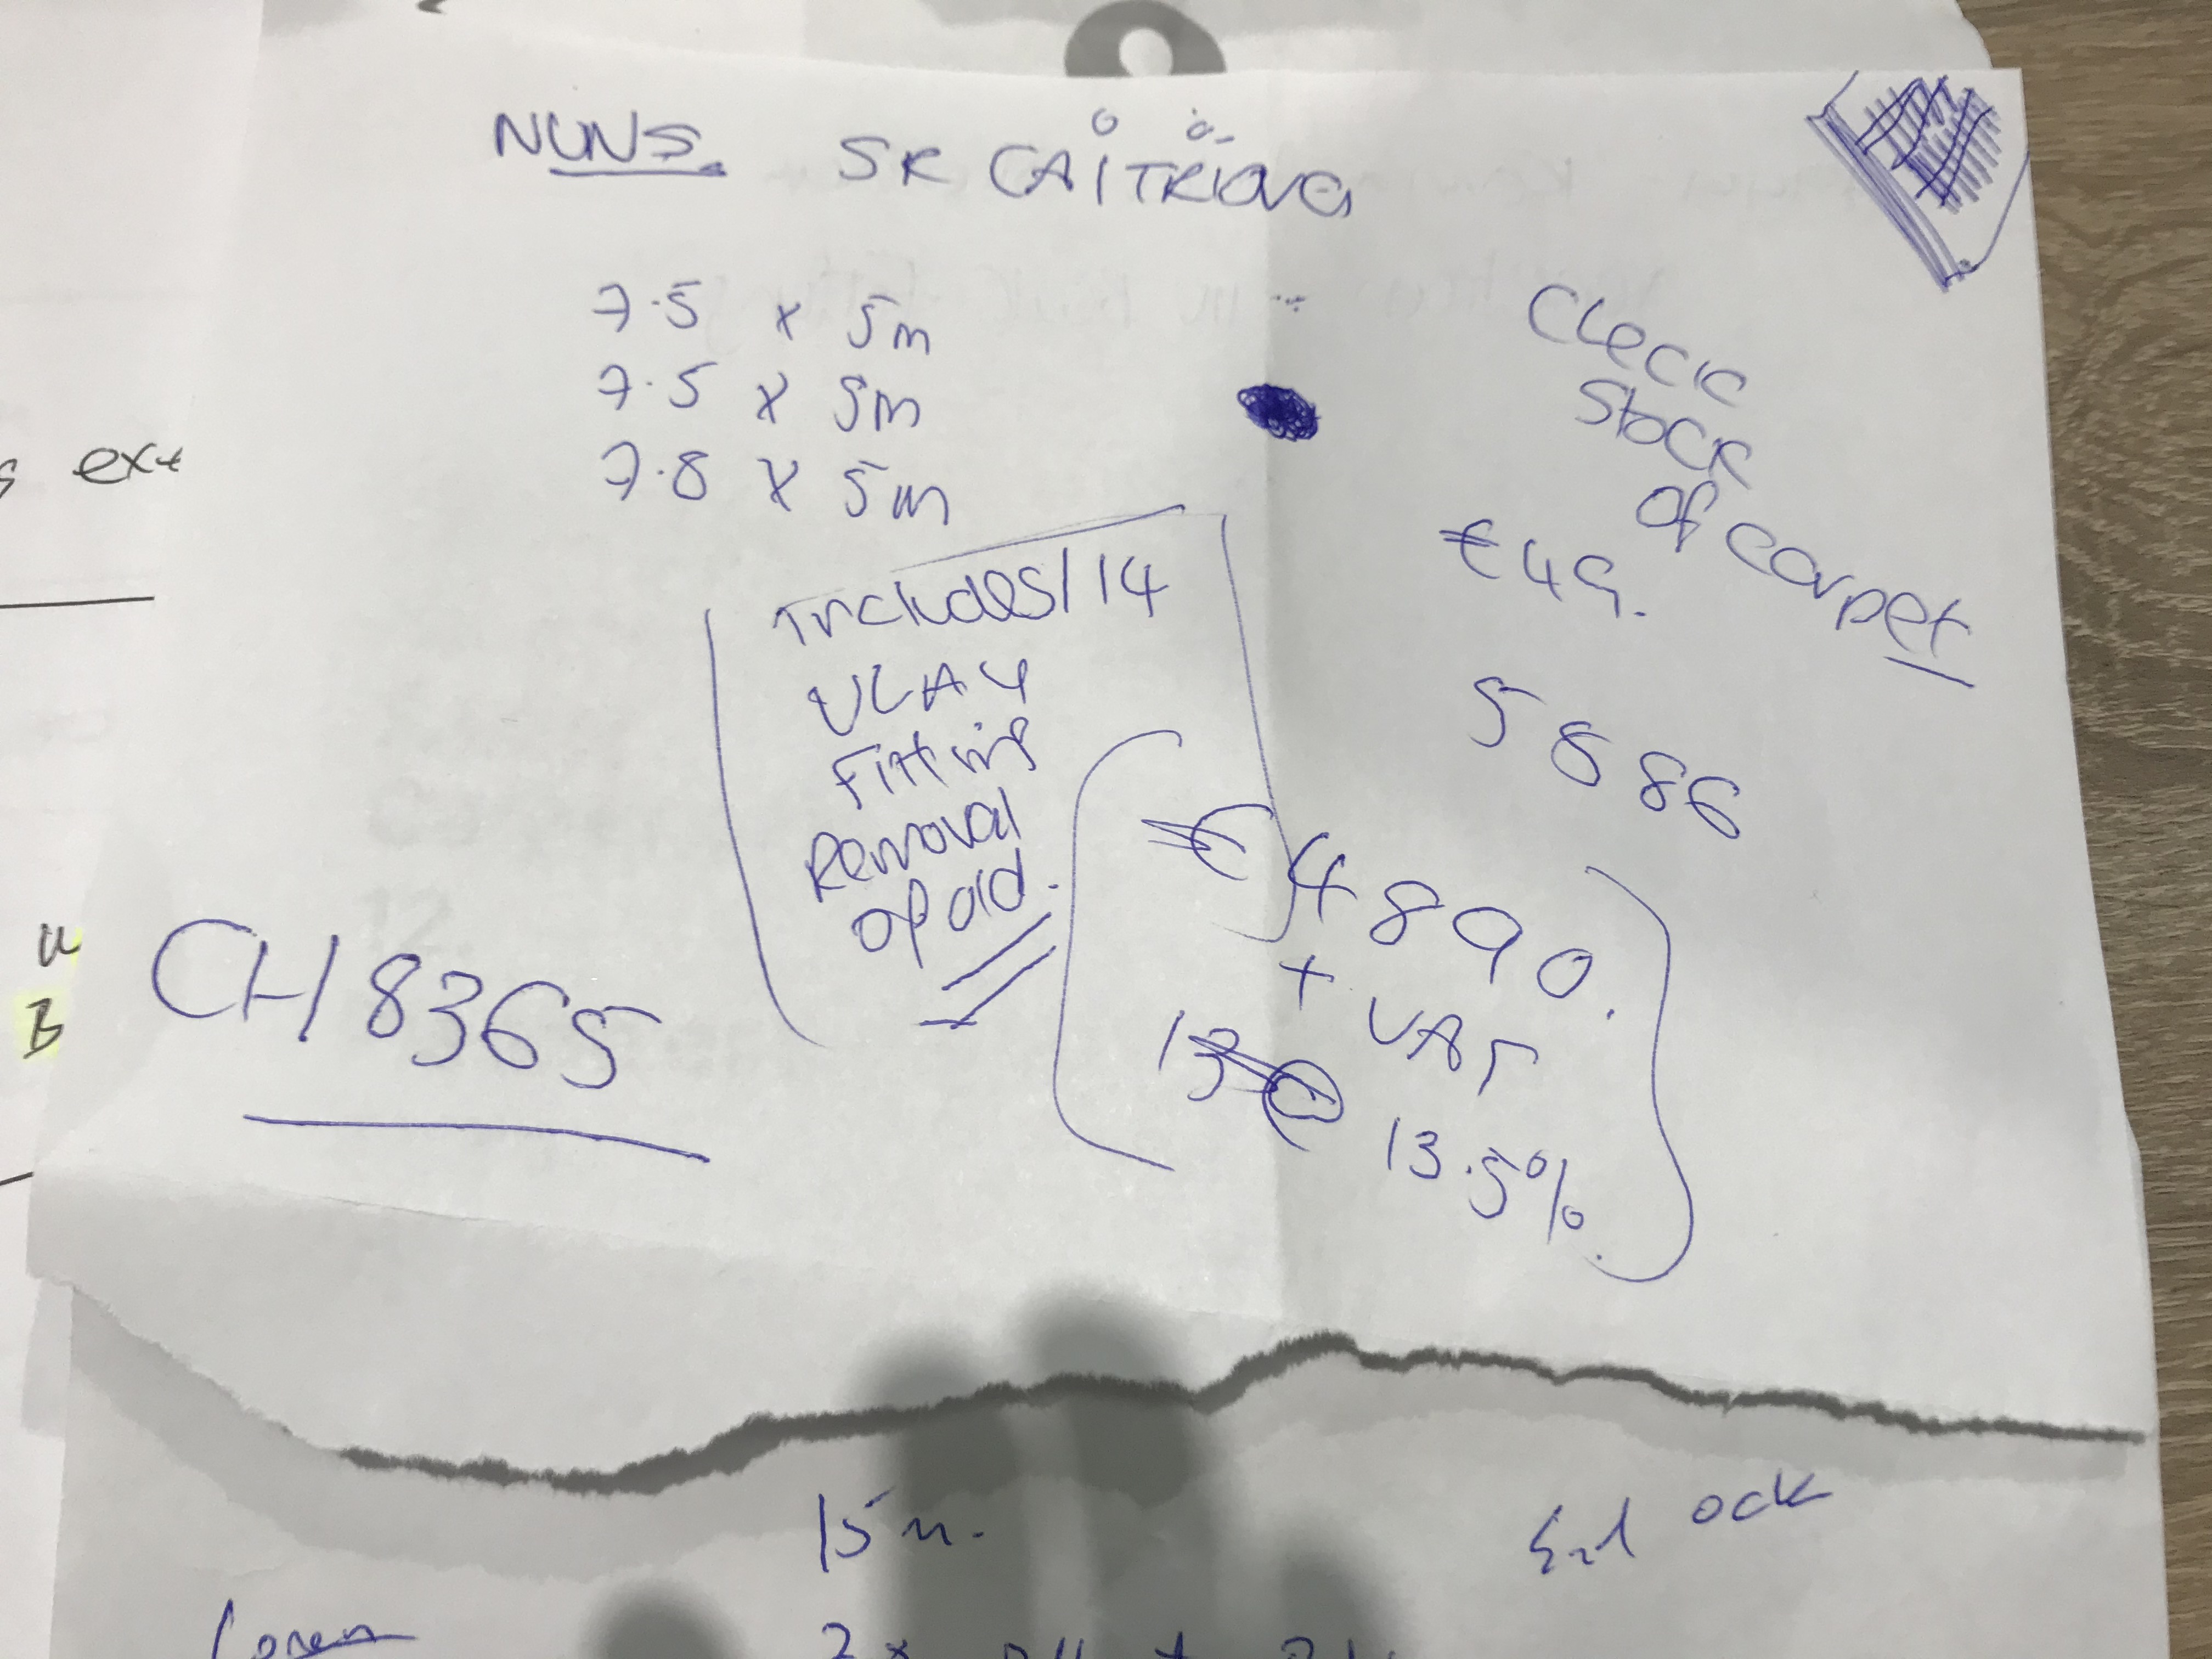 NUNS. SR CAITRIONA
7.5 x 5m
7.5 x 5m
7.8 x 5m
CHeck
Stock
of carpet
€49.
Includes/14
ULAY
Fitting
Removal
of old.
5886
€4890.
+ VAT
13
13.5%.
CH8365
ext
B
15m.
ock